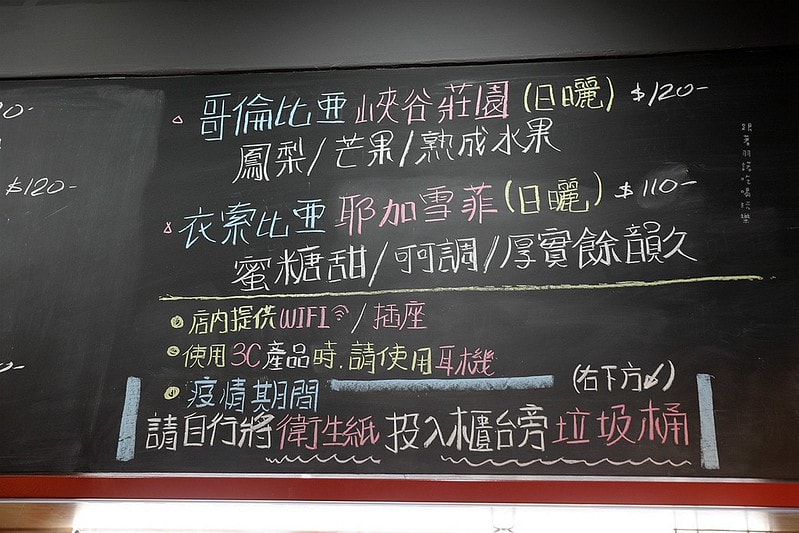 哥倫比亞 峽谷莊園 (日曬) $120-
鳳梨/芒果/熟成水果
衣索比亞 耶加雪菲 (日曬) $110-
蜜糖甜/可可調/厚實餘韻久
店內提供WIFI/插座
使用3C產品時.請使用耳機
疫情期間
(右下方↙)
請自行將衛生紙投入櫃台旁垃圾桶
$120-